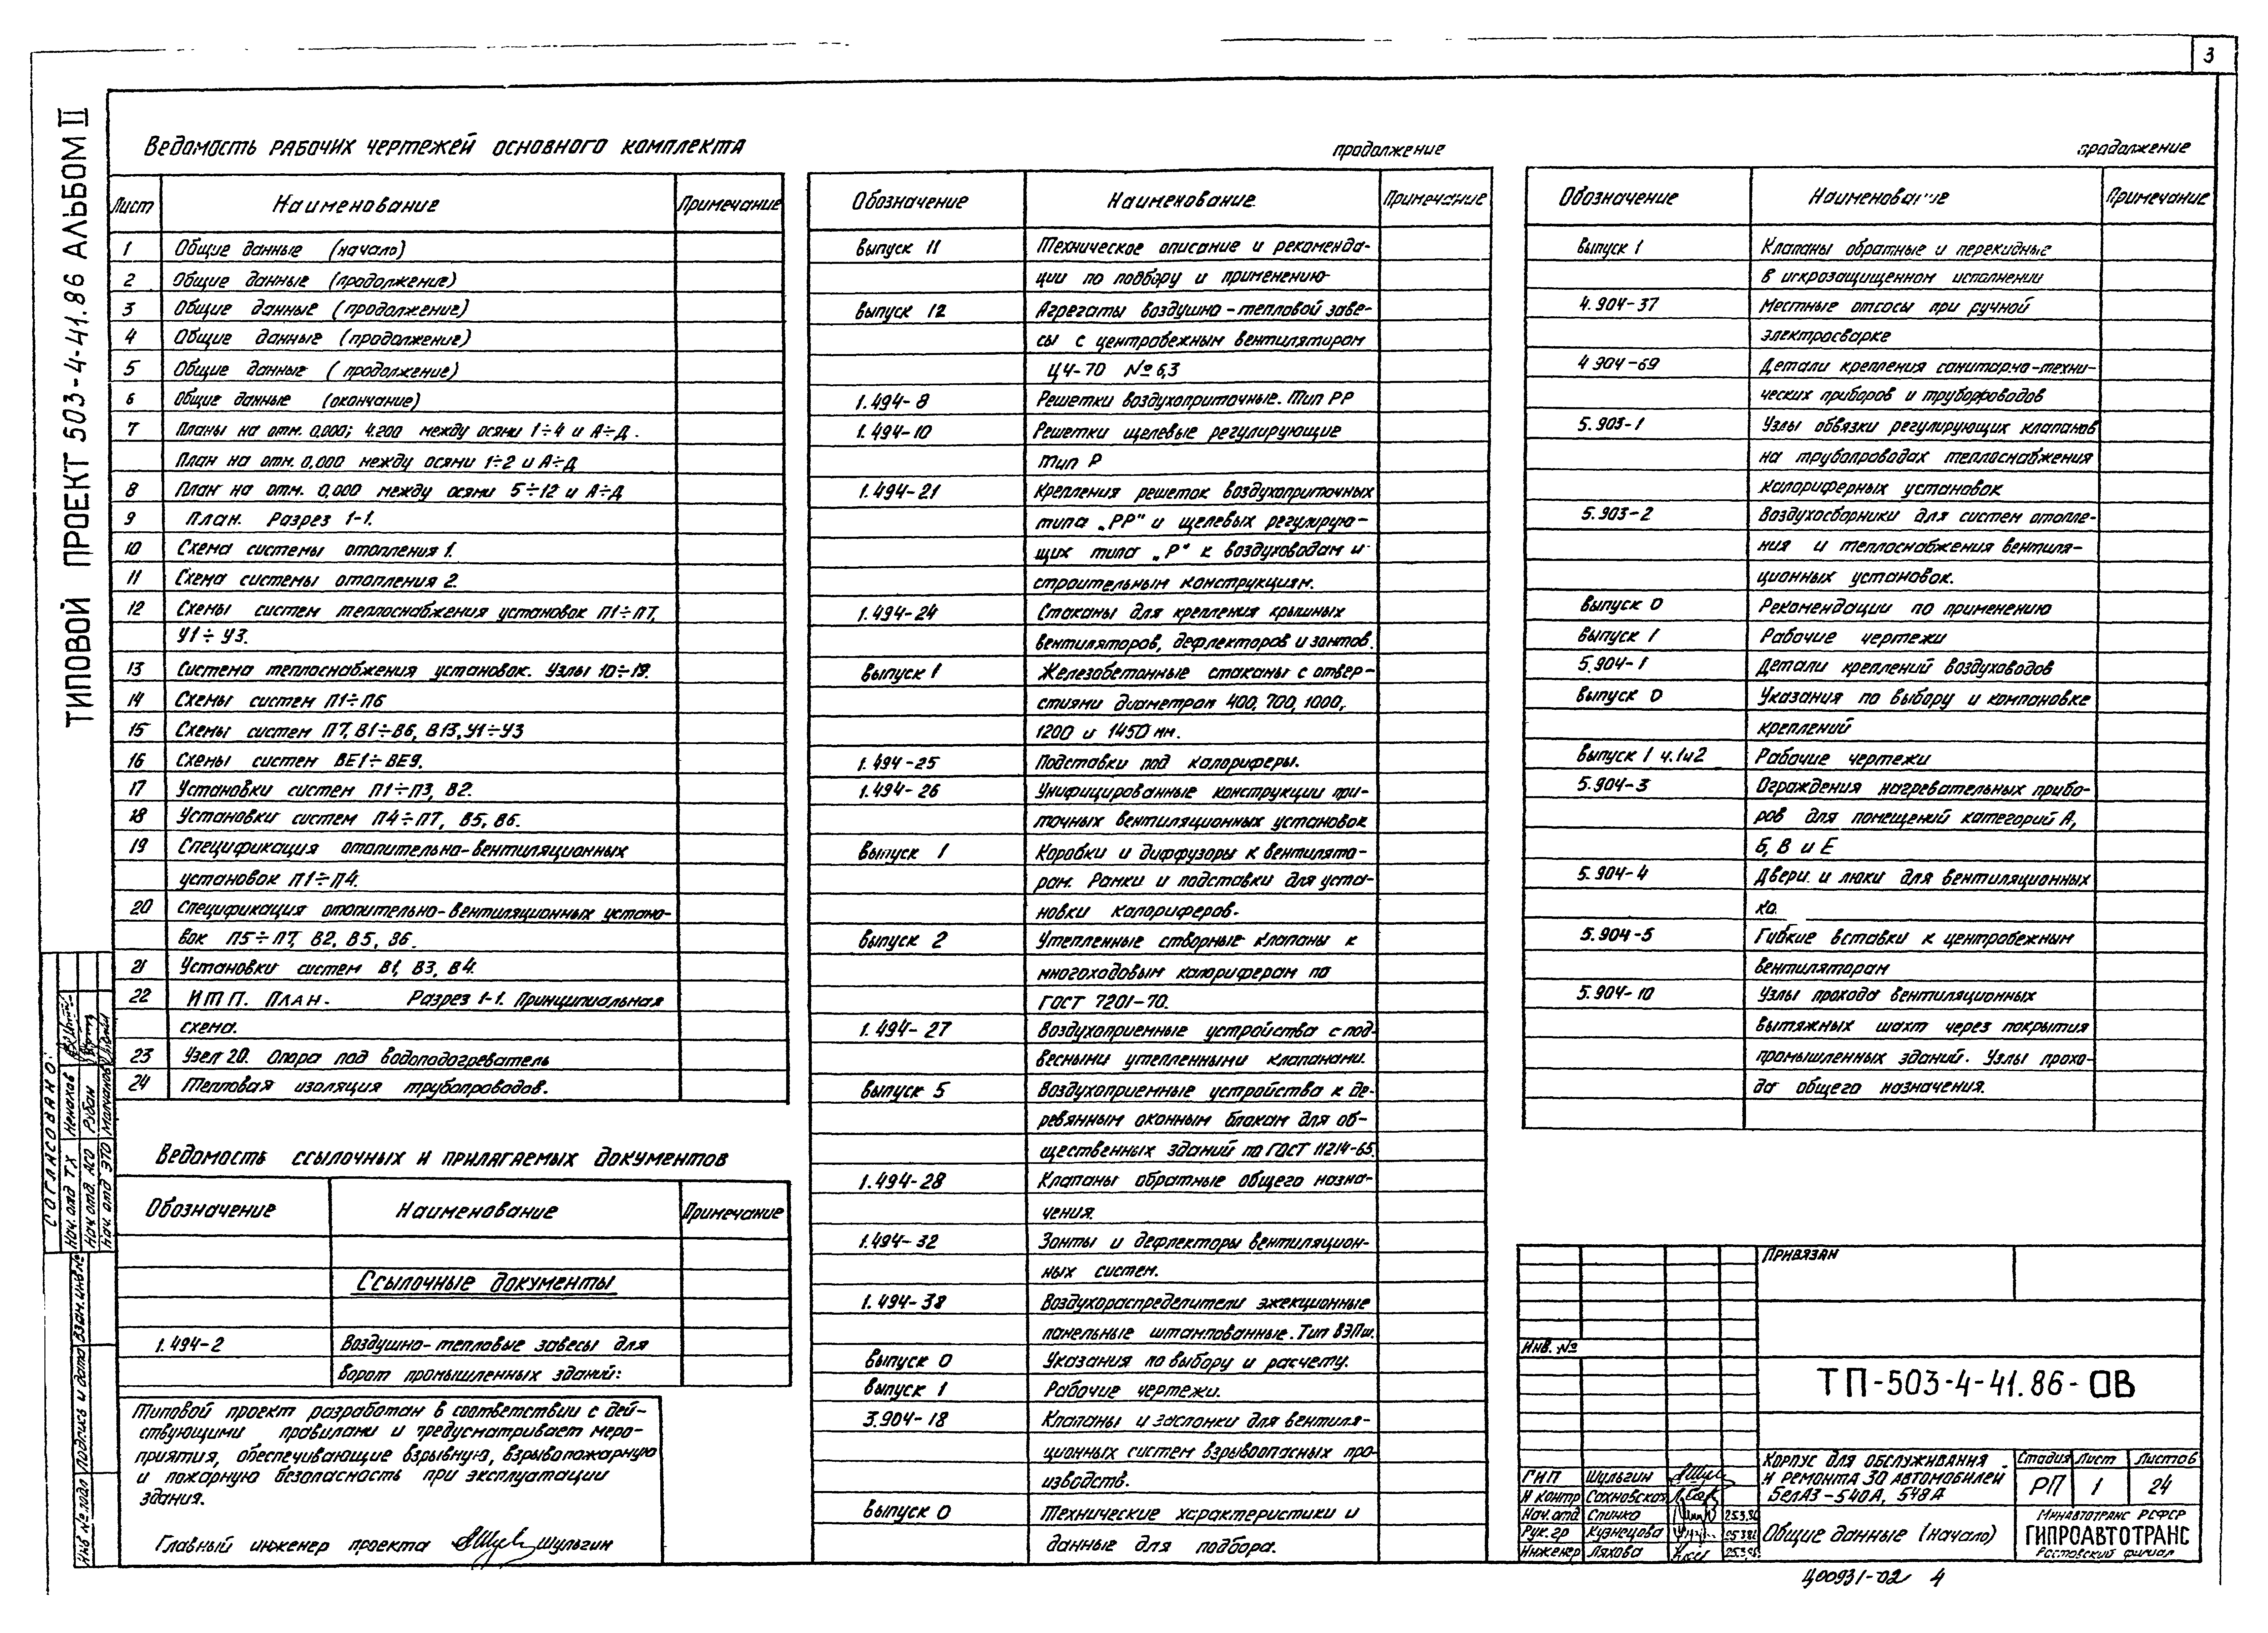 3
ТИПОВОЙ ПРОЕКТ 503-4-41.86 АЛЬБОМ II
Ведомость рабочих чертежей основного комплекта
Лист Наименование Примечание
1 Общие данные (начало)
2 Общие данные (продолжение)
3 Общие данные (продолжение)
4 Общие данные (продолжение)
5 Общие данные (продолжение)
6 Общие данные (окончание)
7 Планы на отм. 0,000; 4.200 между осями 1÷4 и А÷Д.
План на отм. 0,000 между осями 1÷2 и А÷Д
8 План на отм. 0,000 между осями 5÷12 и А÷Д
9 План. Разрез 1-1.
10 Схема системы отопления 1.
11 Схема системы отопления 2.
12 Схемы систем теплоснабжения установок П1÷П7,
У1÷У3.
13 Система теплоснабжения установок. Узлы 10÷19.
14 Схемы систем П1÷П6
15 Схемы систем П7, В1÷В6, В13, У1÷У3
16 Схемы систем ВЕ1÷ВЕ9.
17 Установки систем П1÷П3, В2.
18 Установки систем П4÷П7, В5, В6.
19 Спецификация отопительно-вентиляционных
установок П1÷П4.
20 Спецификация отопительно-вентиляционных устано-
вок П5÷П7, В2, В5, В6.
21 Установки систем В1, В3, В4.
22 ИТП. План. Разрез 1-1. Принципиальная
схема.
23 Узел 20. Опора под водоподогреватель
24 Тепловая изоляция трубопроводов.
Ведомость ссылочных и прилагаемых документов
Обозначение Наименование Примечание
Ссылочные документы
1.494-2 Воздушно-тепловые завесы для
ворот промышленных зданий:
Типовой проект разработан в соответствии с дей-
ствующими правилами и предусматривает меро-
приятия, обеспечивающие взрывную, взрывопожарную
и пожарную безопасность при эксплуатации
здания.
Главный инженер проекта Шульгин
продолжение
Обозначение Наименование. Примечание
выпуск 11 Техническое описание и рекоменда-
ции по подбору и применению
выпуск 12 Агрегаты воздушно-тепловой заве-
сы с центробежным вентилятором
Ц4-70 №6,3
1.494-8 Решетки воздухоприточные. Тип РР
1.494-10 Решетки щелевые регулирующие
Тип Р
1.494-21 Крепления решеток воздухоприточных
типа „РР" и щелевых регулирую-
щих типа „Р" к воздуховодам и
строительным конструкциям.
1.494-24 Стаканы для крепления крышных
вентиляторов, дефлекторов и зонтов.
выпуск 1 Железобетонные стаканы с отвер-
стиями диаметром 400, 700, 1000,
1200 и 1450 мм.
1.494-25 Подставки под калориферы.
1.494-26 Унифицированные конструкции при-
точных вентиляционных установок
выпуск 1 Коробки и диффузоры к вентилято-
рам. Рамки и подставки для уста-
новки калориферов.
выпуск 2 Утепленные створные клапаны к
многоходовым калориферам по
ГОСТ 7201-70.
1.494-27 Воздухоприемные устройства с под-
весными утепленными клапанами.
выпуск 5 Воздухоприемные устройства к де-
ревянным оконным блокам для об-
щественных зданий по ГОСТ 11214-65.
1.494-28 Клапаны обратные общего назна-
чения.
1.494-32 Зонты и дефлекторы вентиляцион-
ных систем.
1.494-38 Воздухораспределители эжекционные
панельные штампованные. Тип ВЭПш.
выпуск 0 Указания по выбору и расчету.
выпуск 1 Рабочие чертежи.
3.904-18 Клапаны и заслонки для вентиля-
ционных систем взрывоопасных про-
изводств.
выпуск 0 Технические характеристики и
данные для подбора.
продолжение
Обозначение Наименование Примечание
выпуск 1 Клапаны обратные и перекидные
в искрозащищенном исполнении
4.904-37 Местные отсосы при ручной
электросварке
4.904-69 Детали крепления санитарно-техни-
ческих приборов и трубопроводов
5.903-1 Узлы обвязки регулирующих клапанов
на трубопроводах теплоснабжения
калориферных установок
5.903-2 Воздухосборники для систем отопле-
ния и теплоснабжения вентиля-
ционных установок.
выпуск 0 Рекомендации по применению
выпуск 1 Рабочие чертежи
5.904-1 Детали креплений воздуховодов
выпуск 0 Указания по выбору и компановке
креплений
выпуск 1 ч.1и2 Рабочие чертежи
5.904-3 Ограждения нагревательных прибо-
ров для помещений категорий А,
Б, В и Е
5.904-4 Двери и люки для вентиляционных
ка.
5.904-5 Гибкие вставки к центробежным
вентиляторам
5.904-10 Узлы прохода вентиляционных
вытяжных шахт через покрытия
промышленных зданий. Узлы прохо-
да общего назначения.
СОГЛАСОВАНО:
Нач. отд ТХ Ненахов
Нач. отд. АСО Рубан
Нач. отд ЭТО Молчанов
Взам.инв.№
Подпись и дата
Инв № подл
Привязан
Инв. №
ТП-503-4-41.86-ОВ
Корпус для обслуживания
и ремонта 30 автомобилей
БелАЗ-540А, 548А
Стадия Лист Листов
РП 1 24
ГИП Шульгин
Н контр Сахновская
Нач.отд Спинко 25.3.86
Рук. гр Кузнецова 25.3.86
Инженер Ляхова 25.3.86
Общие данные (начало)
Минавтотранс РСФСР
ГИПРОАВТОТРАНС
Ростовский филиал
Ц00931-02 4